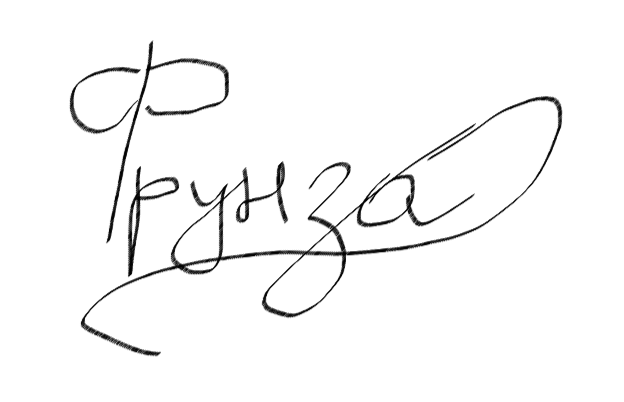 Фрунза